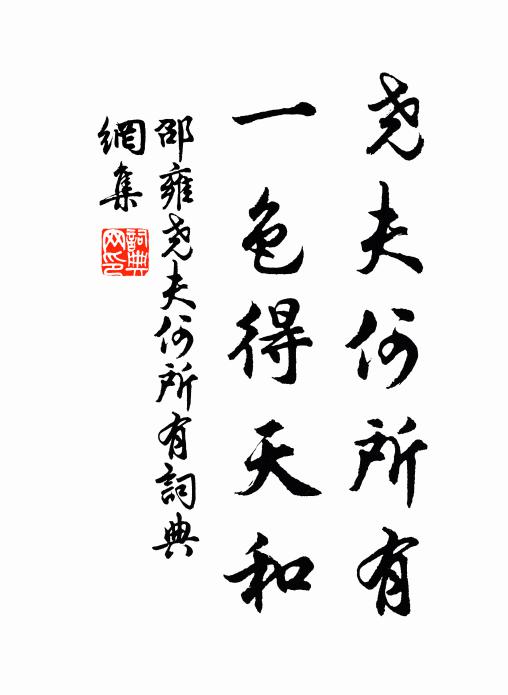 尧夫何所有
一色得天和
邵雍尧夫何所有詞典
網集
詞典
网印